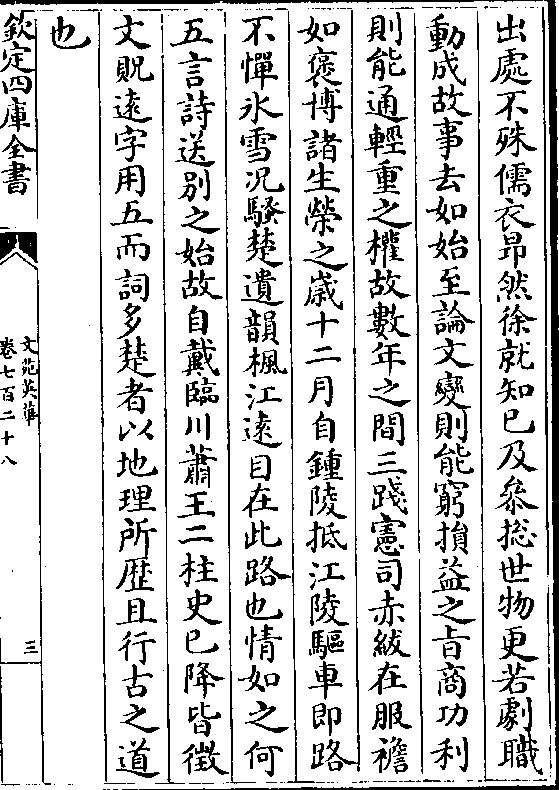 出處不殊儒衣昂然徐就知己及叅捴世物更若劇職
動成故事去如始至論文變則能窮損益之旨商功利
則能通輕重之權故數年之間三踐憲司赤紱在服襜
如褒博諸生榮之歳十二月自鍾陵抵江陵驅車即路
不憚氷雪况騷楚遺韻楓江逺目在此路也情如之何
五言詩送别之始故自戴臨川蕭王二柱史已降皆徴
文貺逺字用五而詞多楚者以地理所歴且行古之道
也
欽定四庫全書
文苑英華
卷七百二十八
三